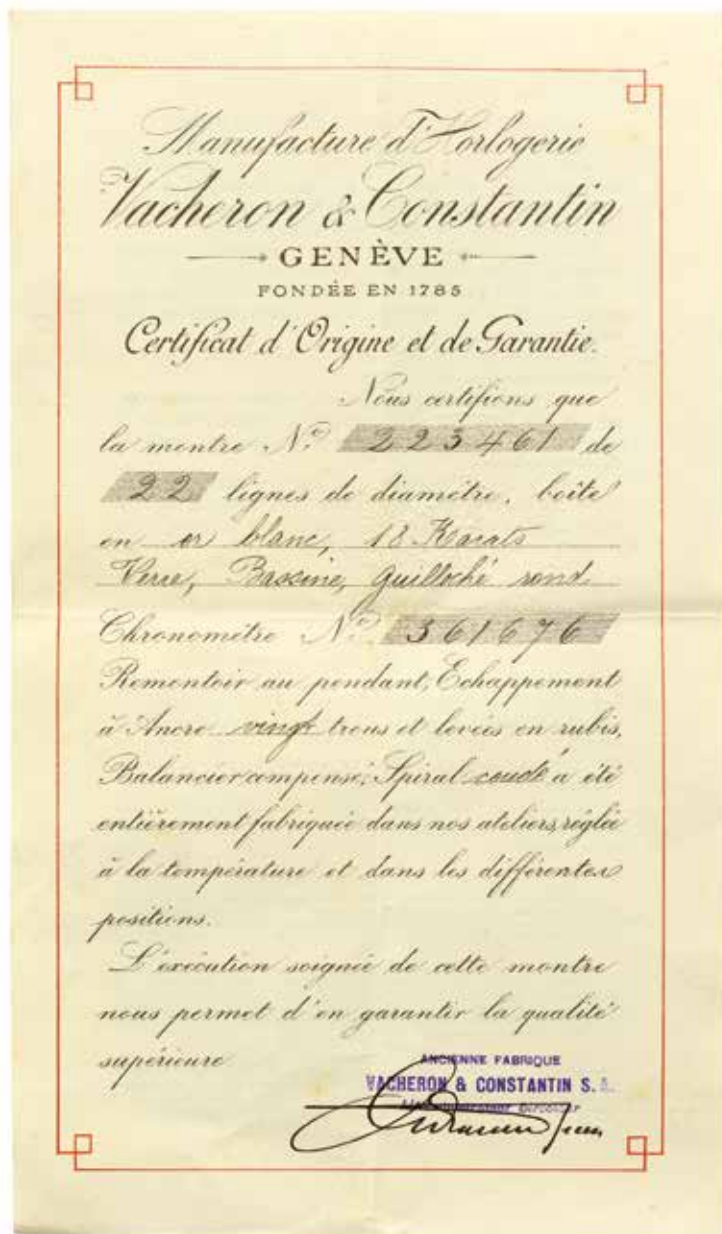 Manufacture d'Horlogerie
Vacheron & Constantin
GENÈVE
FONDÉE EN 1785
Certificat d'Origine et de Garantie.
Nous certifions que
la montre No. 223461 de
22 lignes de diamètre, boîte
en or blanc, 18 Karats
Verre, Bassine, Guilloché rond
Chronomètre No. 361676
Remontoir au pendant, Echappement
à Ancre vingt trous et levées en rubis,
Balancier compensé, Spiral coudé a été
entièrement fabriquée dans nos ateliers, réglée
à la température et dans les différentes
positions.
L'exécution soignée de cette montre
nous permet d'en garantir la qualité
supérieure
ANCIENNE FABRIQUE
VACHERON & CONSTANTIN S.A.